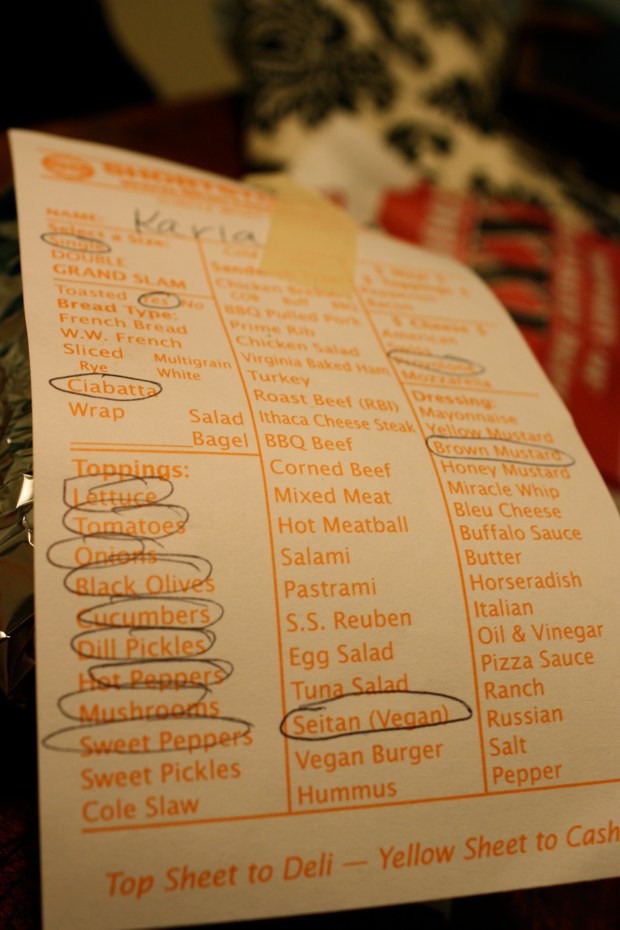 SHORTST
NAME: Karla
Select a Size:
Single
DOUBLE
GRAND SLAM
Toasted Yes No
Bread Type:
French Bread
W.W. French
Sliced
Rye Multigrain
White
Ciabatta
Wrap Salad
Bagel
Toppings:
Lettuce
Tomatoes
Onions
Black Olives
Cucumbers
Dill Pickles
Hot Peppers
Mushrooms
Sweet Peppers
Sweet Pickles
Cole Slaw
Chicken
BBQ Pulled Pork
Prime Rib
Chicken Salad
Virginia Baked Ham
Turkey
Roast Beef (RBI)
Ithaca Cheese Steak
BBQ Beef
Corned Beef
Mixed Meat
Hot Meatball
Salami
Pastrami
S.S. Reuben
Egg Salad
Tuna Salad
Seitan (Vegan)
Vegan Burger
Hummus
$ Cheese $
American
Swiss
Provolone
Mozzarella
Dressing:
Mayonnaise
Yellow Mustard
Brown Mustard
Honey Mustard
Miracle Whip
Bleu Cheese
Buffalo Sauce
Butter
Horseradish
Italian
Oil & Vinegar
Pizza Sauce
Ranch
Russian
Salt
Pepper
Top Sheet to Deli — Yellow Sheet to Cash